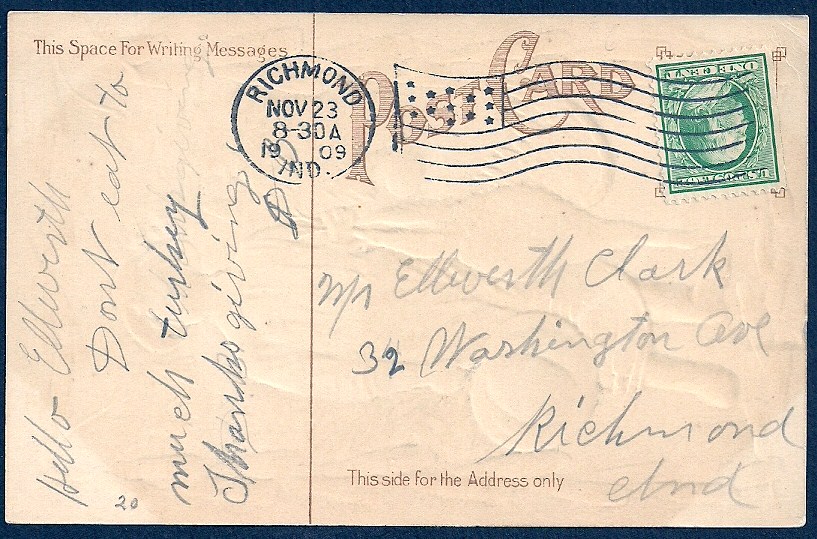 This Space For Writing Messages
POST CARD
RICHMOND
NOV 23
8-30A
19 09
IND.
U.S. POSTAGE
Hello Ellworth
Dont eat to
much turkey
Thanksgiving
Mr Ellworth Clark
32 Washington Ave
Richmond
Ind
This side for the Address only
20